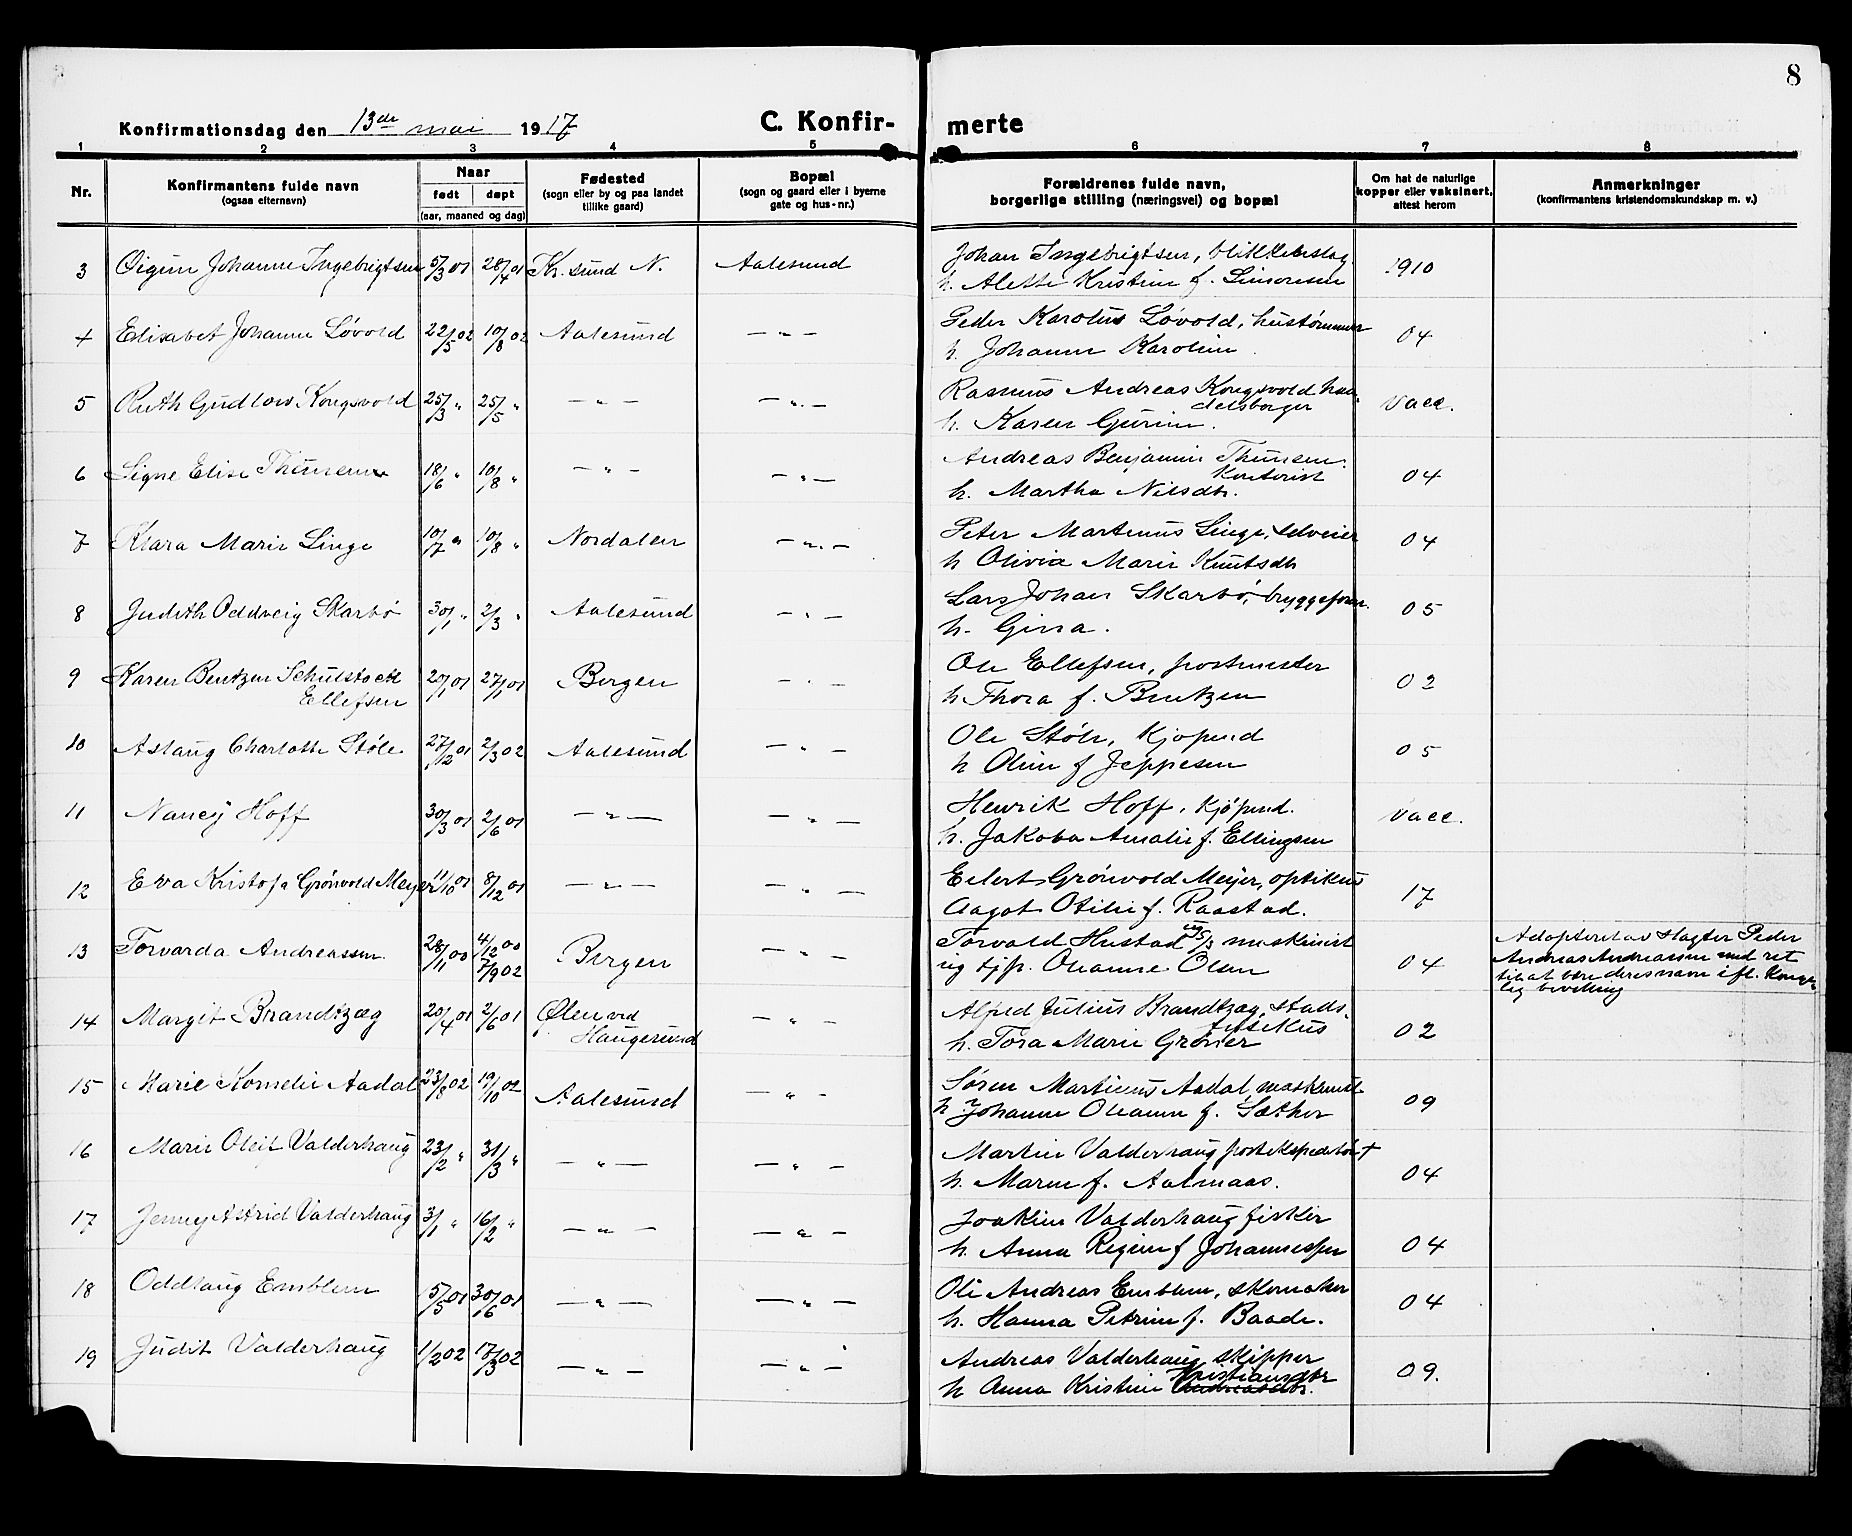 8
Konfirmationsdag den 13de mai 1917
C. Konfir- merte
1 2 3 4 5 6 7 8
Nr.
Konfirmantens fulde navn
(ogsaa efternavn)
Naar
født døpt
(aar, maaned og dag)
Fødested
(sogn eller by og paa landet
tillike gaard)
Bopæl
(sogn og gaard eller i byerne
gate og hus-nr.)
Forældrenes fulde navn,
borgerlige stilling (næringsvei) og bopæl
Om hat de naturlige
kopper eller vaksinert,
attest herom
Anmerkninger
(konfirmantens kristendomskundskap m. v.)
3 Øigunn Johanne Ingebrigtsen 5/3 01 28/4 01 Kr. sund N. Aalesund Johan Ingebrigtsen, blikkenslag. 1910
h. Alette Kristine f. Simonsen
4 Elisabet Johanne Løvold 22/5 02 10/8 02 Aalesund — " — Peder Karolus Løvold, hustømmer 04
h. Johanne Karoline.
5 Ruth Gudlow Kongsvold 25/3 " 25/5 " — " — — " — Rasmus Andreas Kongsvold han-
delsborger vacc.
h. Karen Gurine.
6 Signe Elise Thunem 18/6 " 10/8 " — " — — " — Andreas Benjamin Thunem.
Kontorist 04
h. Martha Nilsdtr.
7 Klara Marie Linge 10/7 " 10/8 " Nordalen — " — Peter Martinus Linge, selveier 04
h Olivia Marie Knutsdtr
8 Judith Oddveig Skarbø 30/1 " 2/3 " Aalesund — " — Lars Johan Skarbø, bryggeform. 05
h. Gina.
9 Karen Bentzen Schulstock
Ellefsen 20/1 01 27/1 01 Bergen — " — Ole Ellefsen, postmester 02
h Thora f. Bentzen
10 Aslaug Charlotte Støle 27/12 01 2/3 02 Aalesund — " — Ole Støle, Kjøpmd 05
h Oline f Jeppesen
11 Nancy Hoff 30/3 01 2/6 01 — " — — " — Henrik Hoff, Kjøpmd. vacc.
h. Jakoba Amalie f. Ellingsen
12 Eva Kristofa Grønvold Meyer 11/10 01 8/12 01 — " — — " — Eilert Grønvold Meyer, optikus 17
Aagot Otilie f. Raastad.
13 Torvarda Andreassen 28/11 00 4/12 00 7/9 02 Bergen Torvald Hustad ug s/s maskinist 04
ug tjp. Oleanne Olsen
Adopteret av slagter Peder
Andreas Andreassen med ret
til at bære deres navn ifl. Konge-
lig bevilling
14 Margit Brandtzæg 20/4 01 2/6 01 Ølen ved
Haugesund — " — Alfred Julius Brandtzæg, stads-
fysikus 02
h. Tora Marie Grøner
15 Marie Kornelie Aadal 23/8 02 19/10 02 Aalesund — " — Søren Martinus Aadal, maskinist 09
h Johanne Oleanne f. Sæther
16 Marie Oleit Valderhaug 23/2 " 31/3 " — " — — " — Martin Valderhaug postekspeditør † 04
h. Maren f. Aalmaas.
17 Jenny Astrid Valderhaug 3/1 " 16/2 " — " — — " — Joakim Valderhaug fisker 04
h. Anna Regine f Johannessen
18 Oddlaug Emblem 5/5 01 30/6 01 — " — — " — Ole Andreas Emblem, skomaker 04
h. Hanna Petrine f. Baade.
19 Judit Valderhaug 1/2 02 17/3 02 — " — — " — Andreas Valderhaug skipper 09.
h Anna Kristine Kristiansdtr
Andreasdtr.